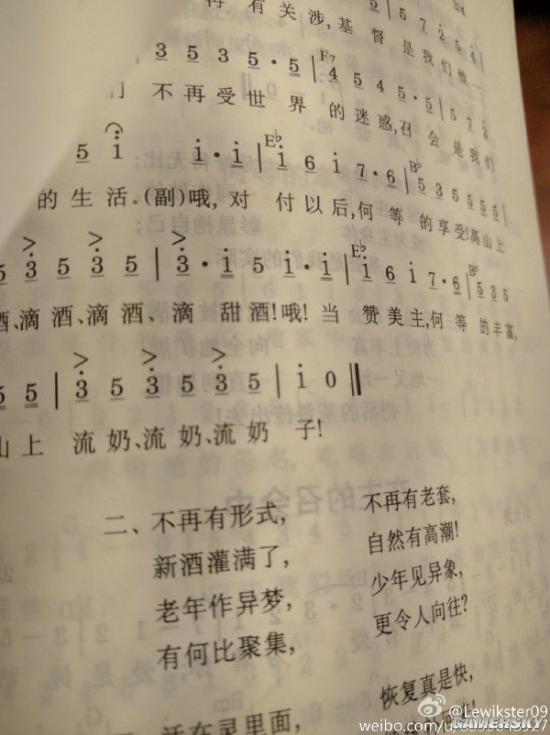 再有关涉,基督是我们唯一
3 5 3 5 · 5 | 4 5 4 5 · 5 | 5 7 2 5 4
们 不再受世界 的迷惑,召会是我们
5 i i · i | i 6 i 7 · 6 | 5 3 5 5 5 5
的生活。(副)哦, 对 付以后,何等的享受!高山上
5 3 5 3 5 | 3 · i 5 i · i | i 6 i 7 · 6 | 5 3 5
酒、滴酒、滴酒、滴 甜酒!哦! 当 赞美主,何等的丰富,
5 5 | 3 5 3 5 3 5 | i 0 ‖
山上 流奶、流奶、流奶 子!
二、不再有形式, 不再有老套,
新酒灌满了, 自然有高潮!
老年作异梦, 少年见异象,
有何比聚集, 更令人向往?
活在灵里面, 恢复真是快,
@Lewikster09
weibo.com/u